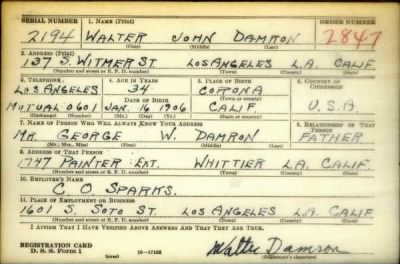 SERIAL NUMBER 1. NAME (Print) ORDER NUMBER
2194 WALTER JOHN DAMRON 2847
(First) (Middle) (Last)
2. ADDRESS (Print)
137 S. WITMER ST LOS ANGELES L.A. CALIF.
(Number and street or R. F. D. number) (Town) (County) (State)
3. TELEPHONE 4. AGE IN YEARS 5. PLACE OF BIRTH 6. COUNTRY OF CITIZENSHIP
LOS ANGELES 34 CORONA
DATE OF BIRTH (Town or county)
MUTUAL 0601 JAN. 16 1906 CALIF U.S.A
(Exchange) (Number) (Mo.) (Day) (Yr.) (State or country)
7. NAME OF PERSON WHO WILL ALWAYS KNOW YOUR ADDRESS 8. RELATIONSHIP OF THAT PERSON
MR. GEORGE W. DAMRON FATHER
(Mr., Mrs., Miss) (First) (Middle) (Last)
9. ADDRESS OF THAT PERSON
1747 PAINTER EXT. WHITTIER L.A. CALIF.
(Number and street or R. F. D. number) (Town) (County) (State)
10. EMPLOYER'S NAME
C. O. SPARKS.
11. PLACE OF EMPLOYMENT OR BUSINESS
1601 S. SOTO ST. LOS ANGELES L.A. CALIF
(Number and street or R. F. D. number) (Town) (County) (State)
I AFFIRM THAT I HAVE VERIFIED ABOVE ANSWERS AND THAT THEY ARE TRUE.
REGISTRATION CARD
D. S. S. Form 1 (over) Walter Damron
(Registrant's signature)